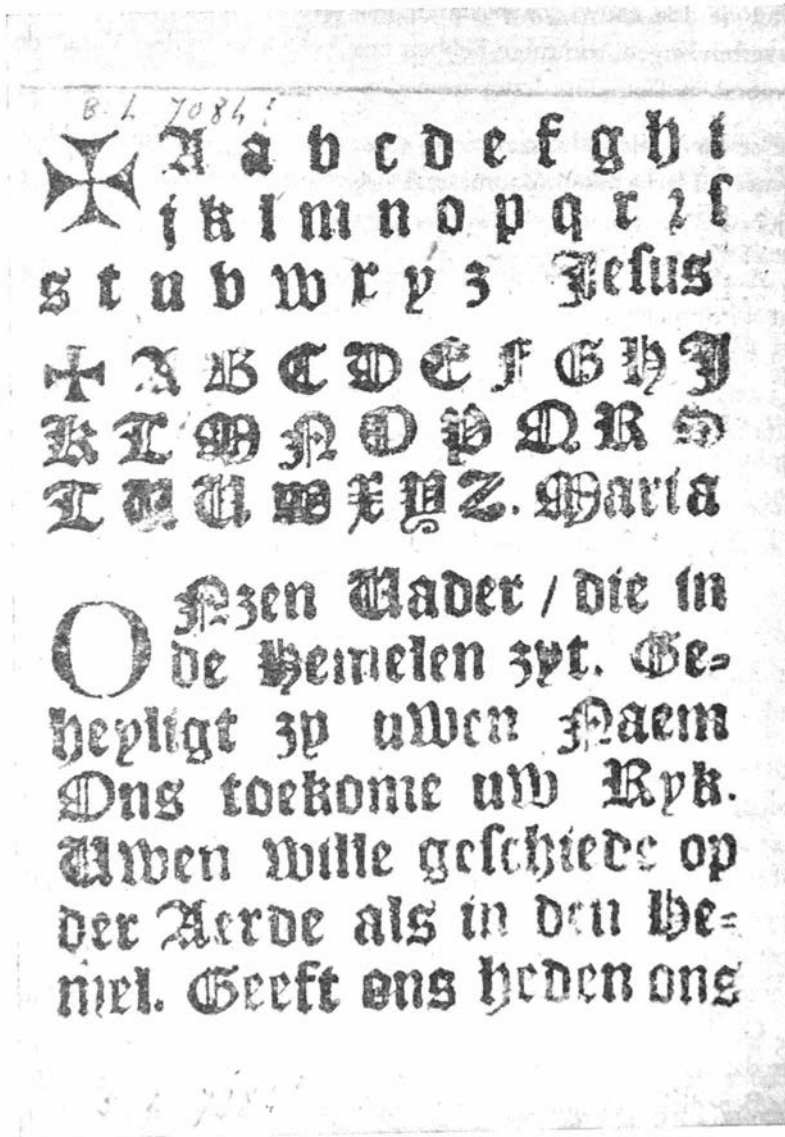 B. L 7084
✠ A a b c d e f g h i
j k l m n o p q r ꝛ ſ
s t u v w x y z Jeſus
✠ A B C D E F G H J
K L M N O P Q R S
T U U W X Y Z. Maria
ONzen Vader / die in
de Hemelen zyt. Ge⸗
heyligt zy uwen Naem
Ons toekome uw Ryk.
Uwen wille geſchiede op
der Aerde als in den He⸗
mel. Geeft ons heden ons